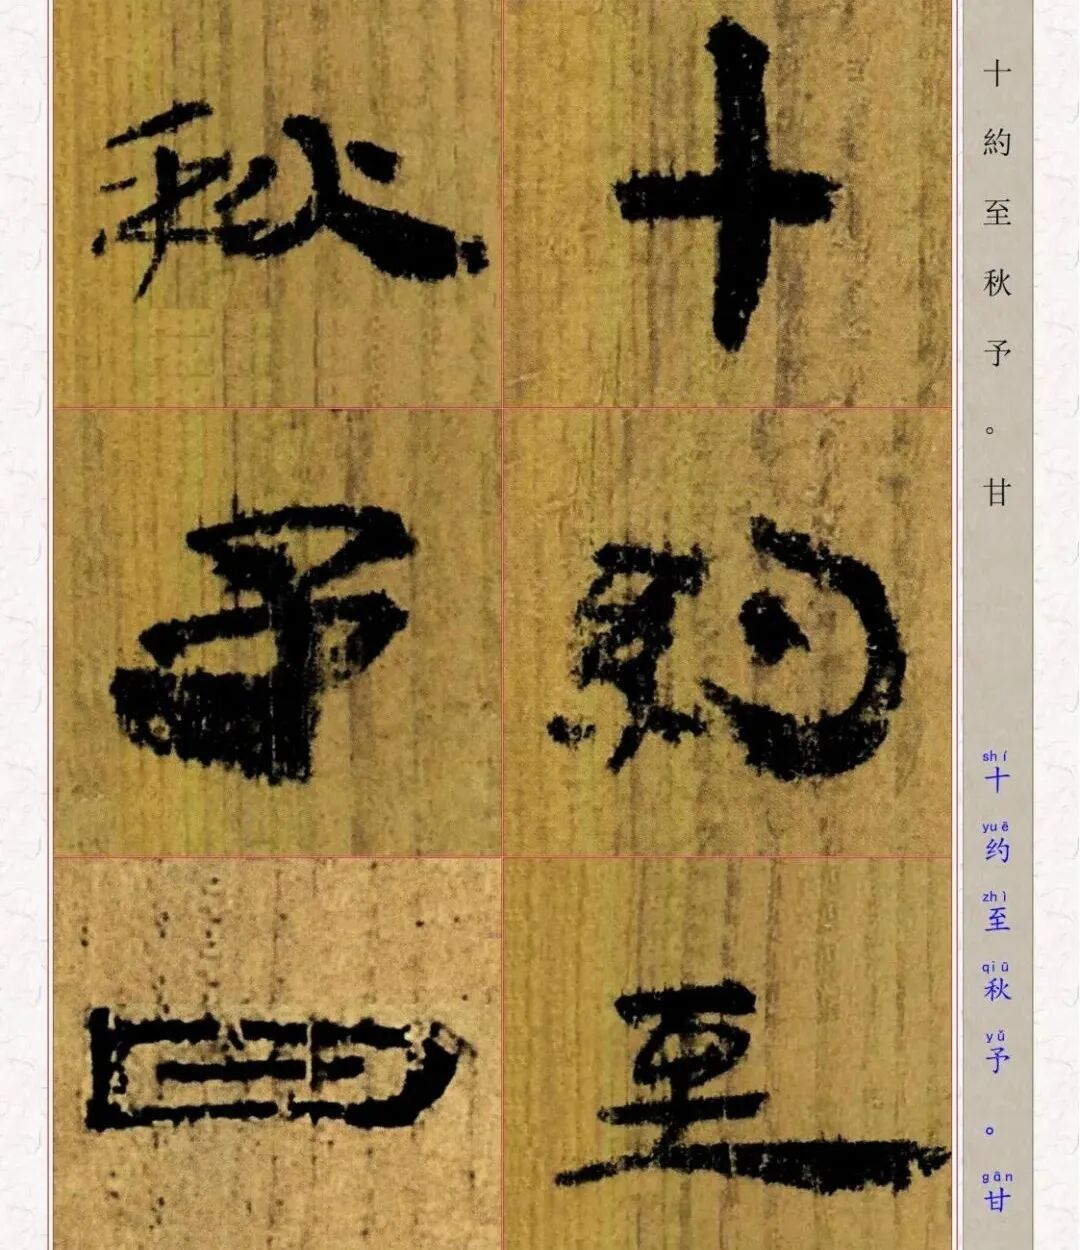 十約至
秋予甘
十約至秋予。甘
shí yuē zhì qiū yǔ gān
十约至秋予。甘